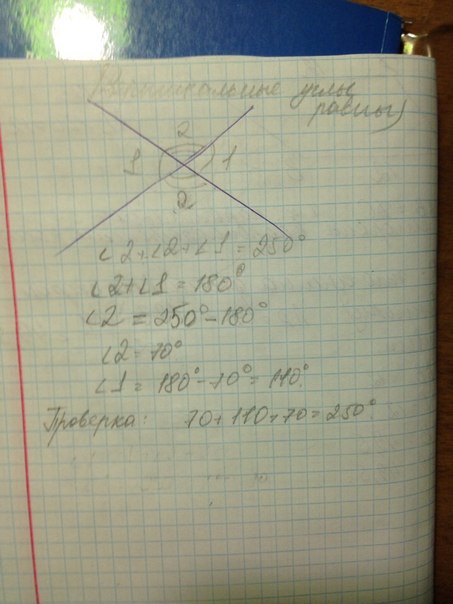 Вертикальные углы
равны)
2
1 1
2
∠2+∠2+∠1=250°
∠2+∠1=180°
∠2=250°-180°
∠2=70°
∠1=180°-70°=110°.
Проверка: 70+110+70=250°